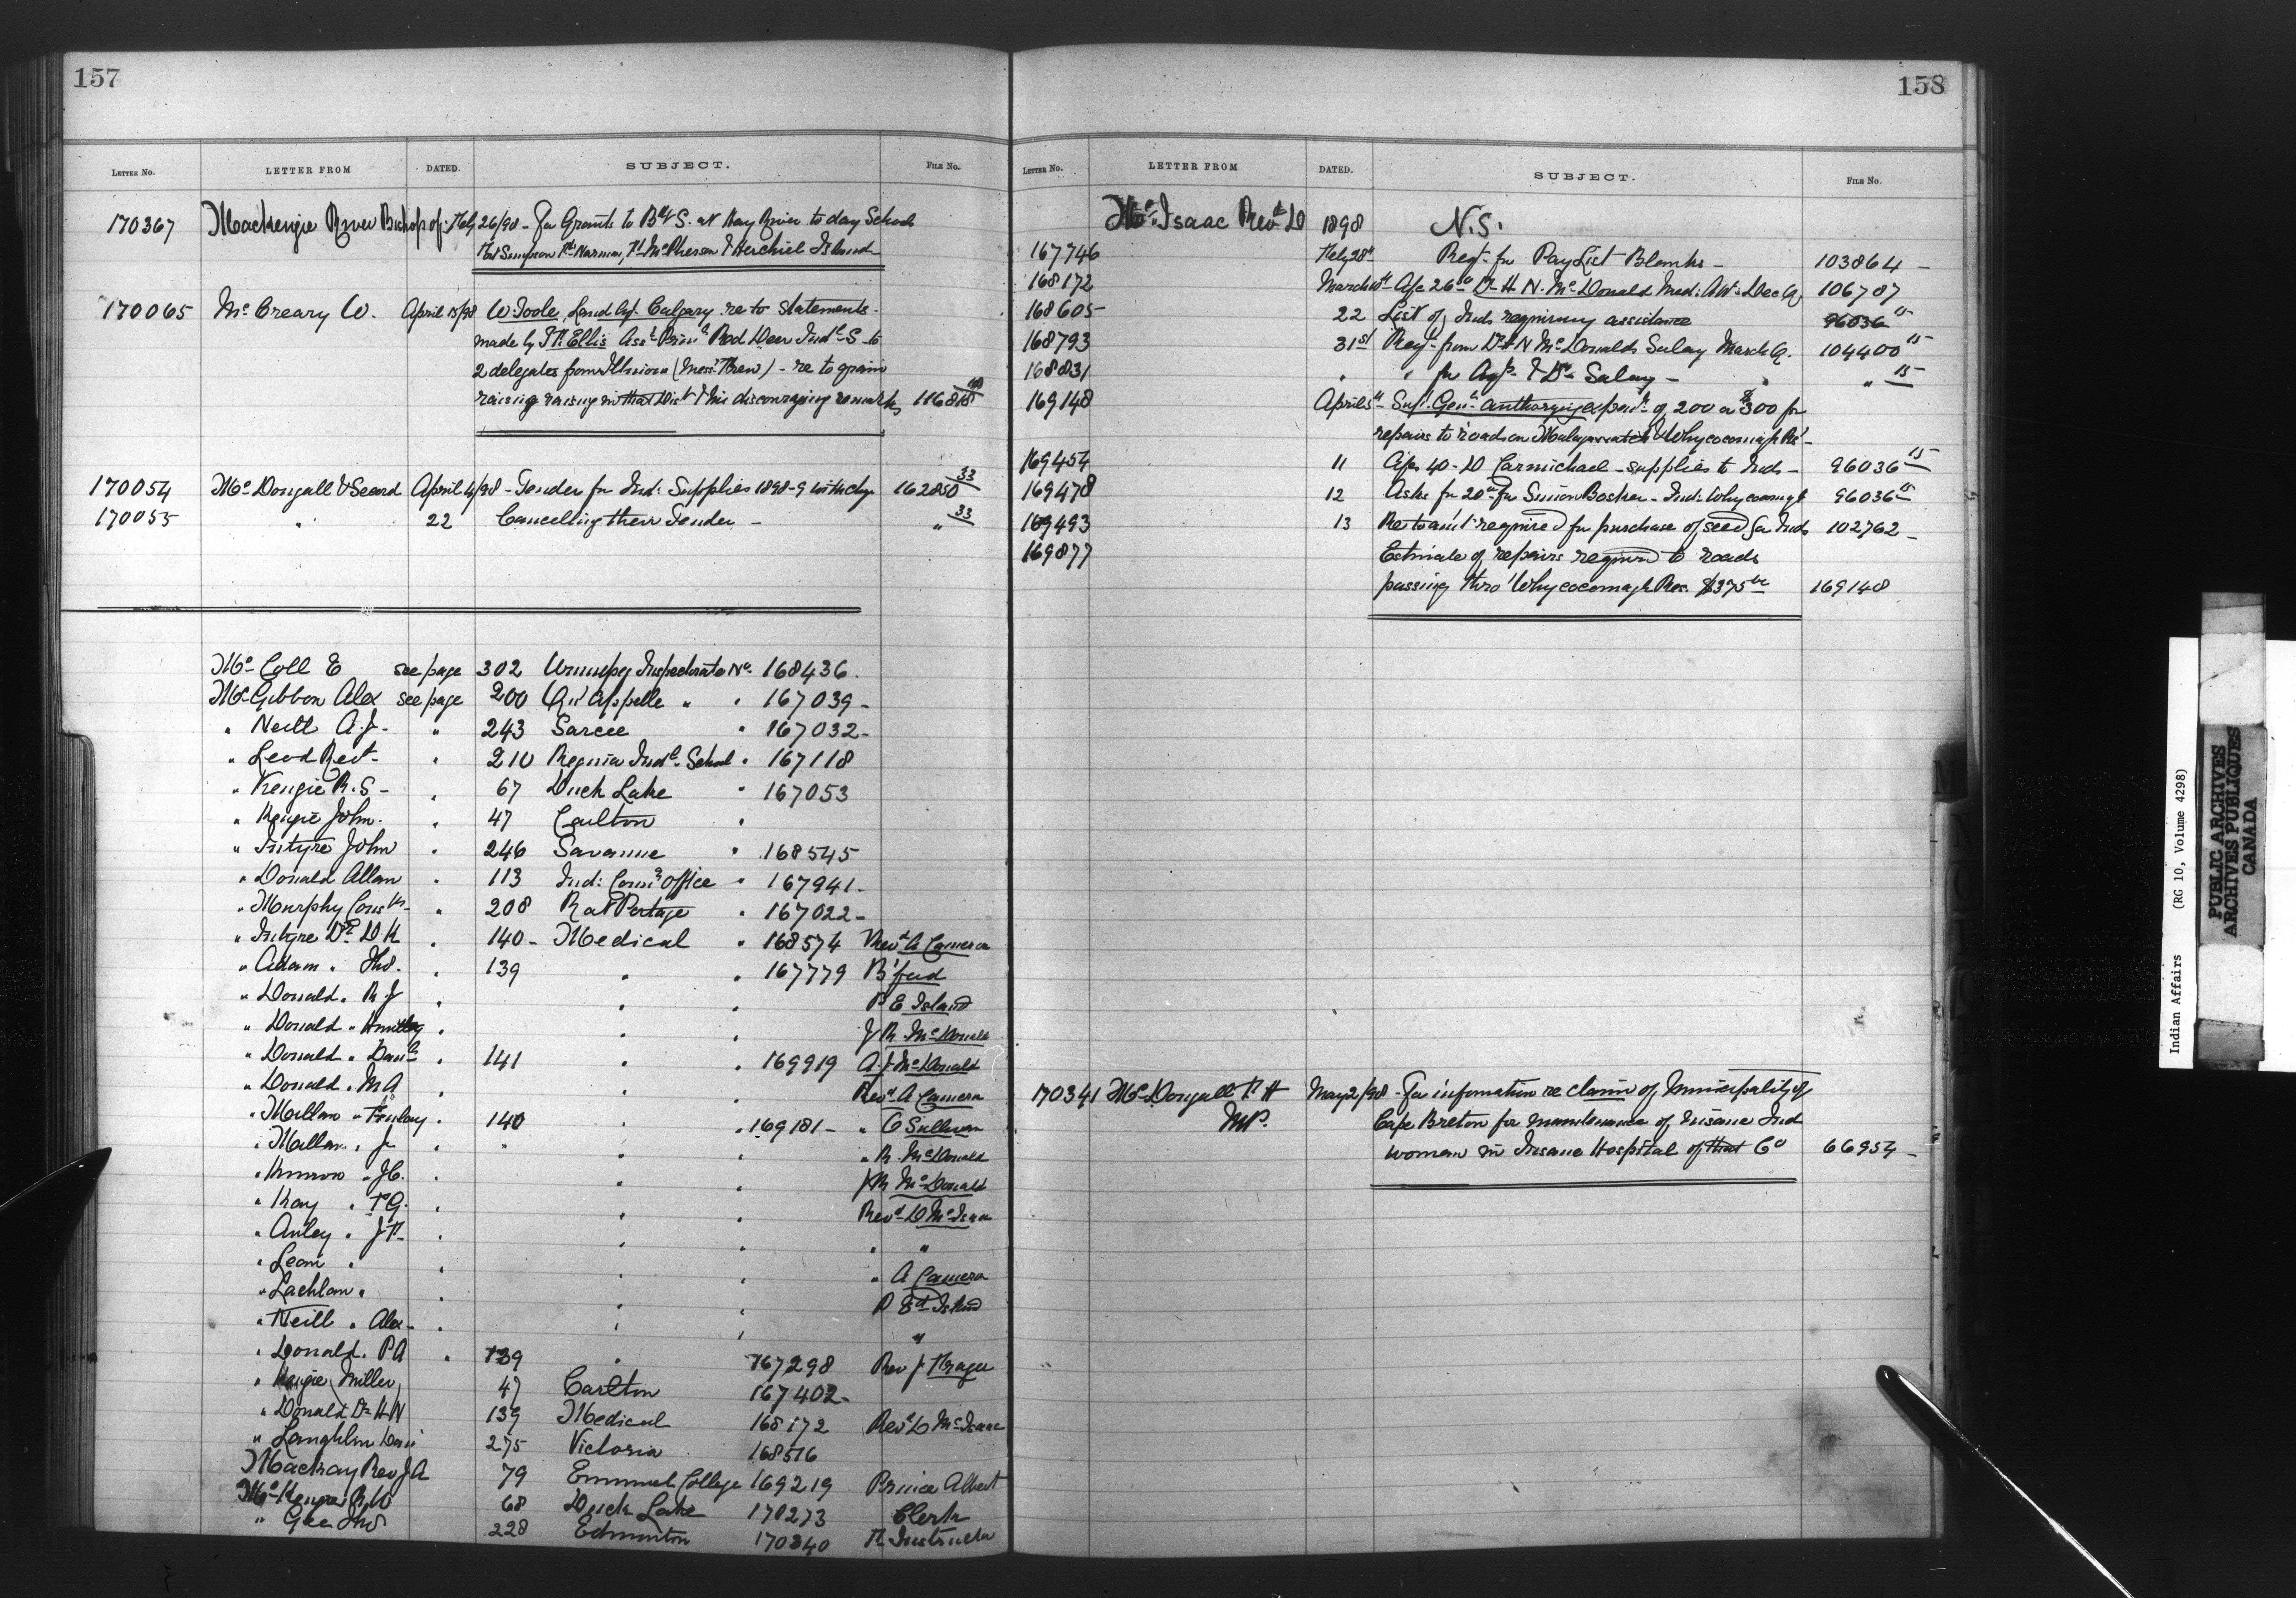 157
LETTER NO. LETTER FROM DATED. SUBJECT. FILE NO.
170367 Mackenzie River Bishop of Feby 26/98 - For Grants to B&S. at Hay River to day Schools
Fort Simpson Ft Norman, Ft McPherson & Herchiel Island
170065 McCreary W. April 15/98 W. Toole, Land Agt. Calgary re to Statements
made by Ellis Asst Prinl Red Deer Indl S - to
2 delegates from Illinois - re to grain
raising raising in that Dist & his discouraging remarks 116818
170054 McDougall & Secord April 4/98 - Tender for Ind: Supplies 1898-9 with chq 162850 33
170055 " 22 Cancelling their Tender - " 33
McColl E see page 302 Winnipeg Inspectorate No. 168436.
McGibbon Alex see page 200 Qu'Appelle " " 167039 -
" Neill A.J. " 243 Sarcee " 167032 -
" Leod Revd " 210 Regina Indl. School " 167118
" Kenzie R.S - " 67 Duck Lake " 167053
" Kenzie John. " 47 Carlton "
" Intyre John " 246 Savanne " 168545
" Donald Allan " 113 Ind: Comrs Office " 167941 -
" Murphy " 208 Rat Portage " 167022 -
" Intyre Dr D H " 140 - Medical " 168574 Revd A Cameron
" Adam " Thos. " 139 " " 167779 B'ford
" Donald " R J " " " P E Island
" Donald " " " " J R McDonald
" Donald " Danl " 141 " " 169919 A J McDonald
" Donald " M A " " " Revd A Cameron
" Millan " Finlay " 140 " " 169181 - " C Sullivan
" Millan " J " " " " R. McDonald
" Kinnon " J C. " " " J R McDonald
" Kay " T G. " " " Revd D McIsaac
" Auley " J F. " " " " "
" Lean " " " " " A Cameron
" Lachlan " " " " P Ed Island
" Neill " Alex - " " " "
" Donald " P A " 139 " 167298 Rev J Fraser
" Kenzie Miller 47 Carlton 167402 -
" Donald Dr H N 139 Medical 168172 Revd D McIsaac
" Laughlin Danl 275 Victoria 168516
Mackay Rev J A 79 Emmanuel College 169219 Prince Albert
McKenzie R W 68 Duck Lake 170273 Clerk
" Gee Jno 228 Edmonton 170340 F. Instructor
158
LETTER NO. LETTER FROM DATED. SUBJECT. FILE NO.
McIsaac Revd D 1898 N.S.
167746 Feby 28th Reqt. for Pay List Blanks - 103864 -
168172 March Afc 26.00 Dr H N. McDonald Med: Att: Dec Q. 106787
168605 22 List of Inds requiring assistance 96036 15
168793 31st Reqt. from Dr H N McDonalds Salary March Q. 104400 15
168831 " " for Agts. & Drs Salary - " " 15
169148 April 5th - Supt. Genl. authorizing expend. of 200 or $300 for
repairs to roads on Malagawatch & Whycocomagh Rs -
169454 11 Afc 40 - D Carmichael - supplies to Inds - 96036 15
169478 12 Asks for 20.00 for Simon Basker - Ind: Whycocomagh 96036 15
169493 13 Re to amt required for purchase of seed for Inds 102762 -
169877 Estimate of repairs required to roads
passing thro' Whycocomagh Res. $375.00 169148
170341 McDougall H F May 2/98 - For information re claim of Municipality of
MP. Cape Breton for maintenance of Insane Ind
woman in Insane Hospital of that Co 66954 -
Indian Affairs (RG 10, Volume 4298)
PUBLIC ARCHIVES
ARCHIVES PUBLIQUES
CANADA